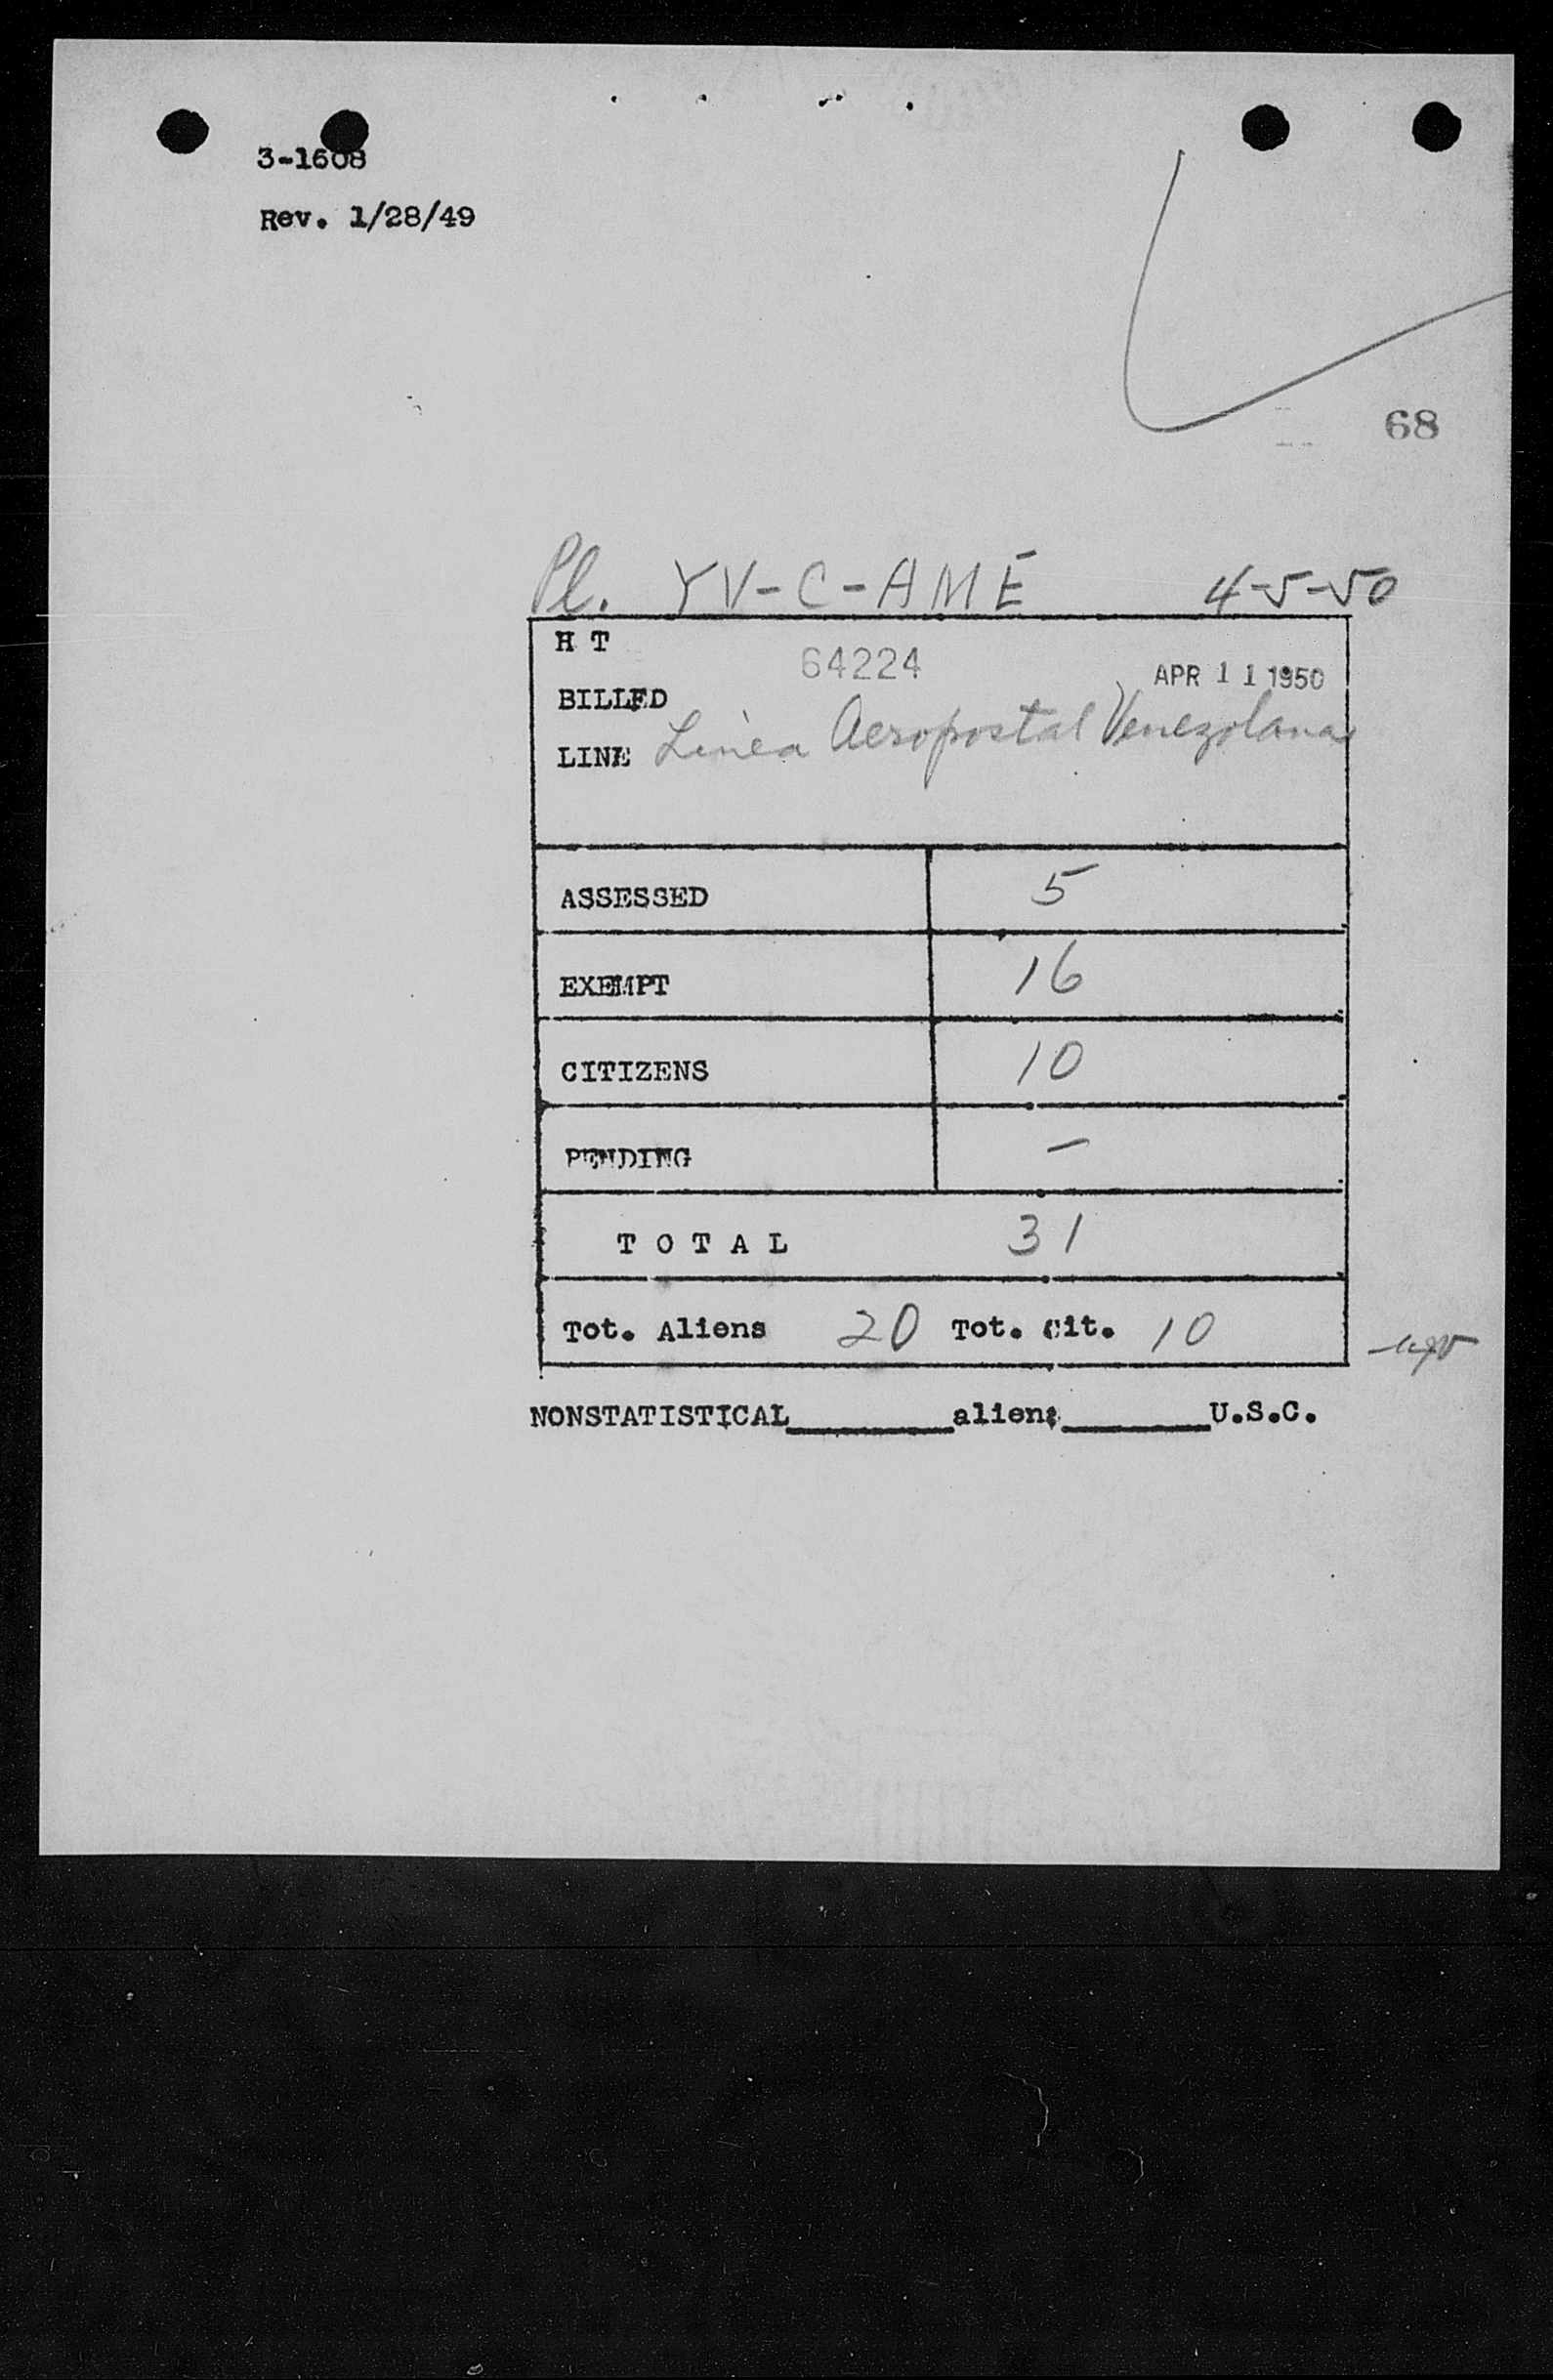 3-1608
Rev. 1/28/49
68
Pl. YV-C-AME 4-5-50
H T
64224 APR 11 1950
BILLED
LINE Linea Aeropostal Venezolana
ASSESSED 5
EXEMPT 16
CITIZENS 10
PENDING -
TOTAL 31
Tot. Aliens 20 Tot. Cit. 10
NONSTATISTICAL________alien;________U.S.C.